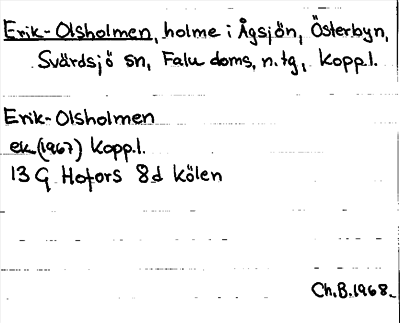 Erik-Olsholmen, holme i Ågsjön, Österbyn,
Svärdsjö sn, Falu doms, n.tg, Kopp.l.
Erik-Olsholmen
ek (1967) Kopp.l.
13 G Hofors 8d Kölen
Ch.B.1968.